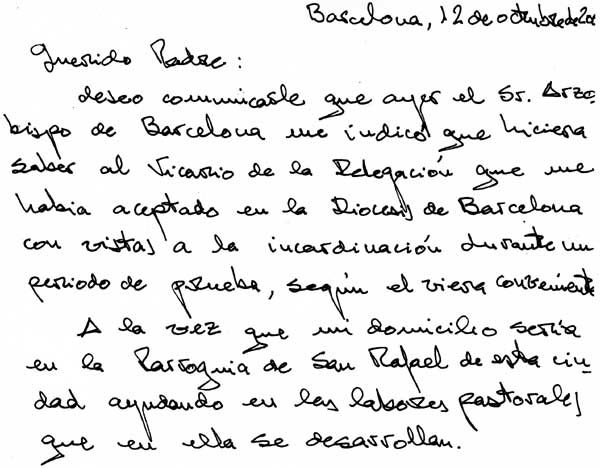 Barcelona, 12 de octubre de 20
Querido Padre:
deseo comunicarle que ayer el Sr. Arzo
bispo de Barcelona me indicó que hiciera
saber al Vicario de la Delegación que me
había aceptado en la Diocesis de Barcelona
con vistas a la incardinación durante un
periodo de prueba, según el viera conveniente
A la vez que mi domicilio sería
en la Parroquia de San Rafael de esta ciu-
dad ayudando en las labores pastorales
que en ella se desarrollan.